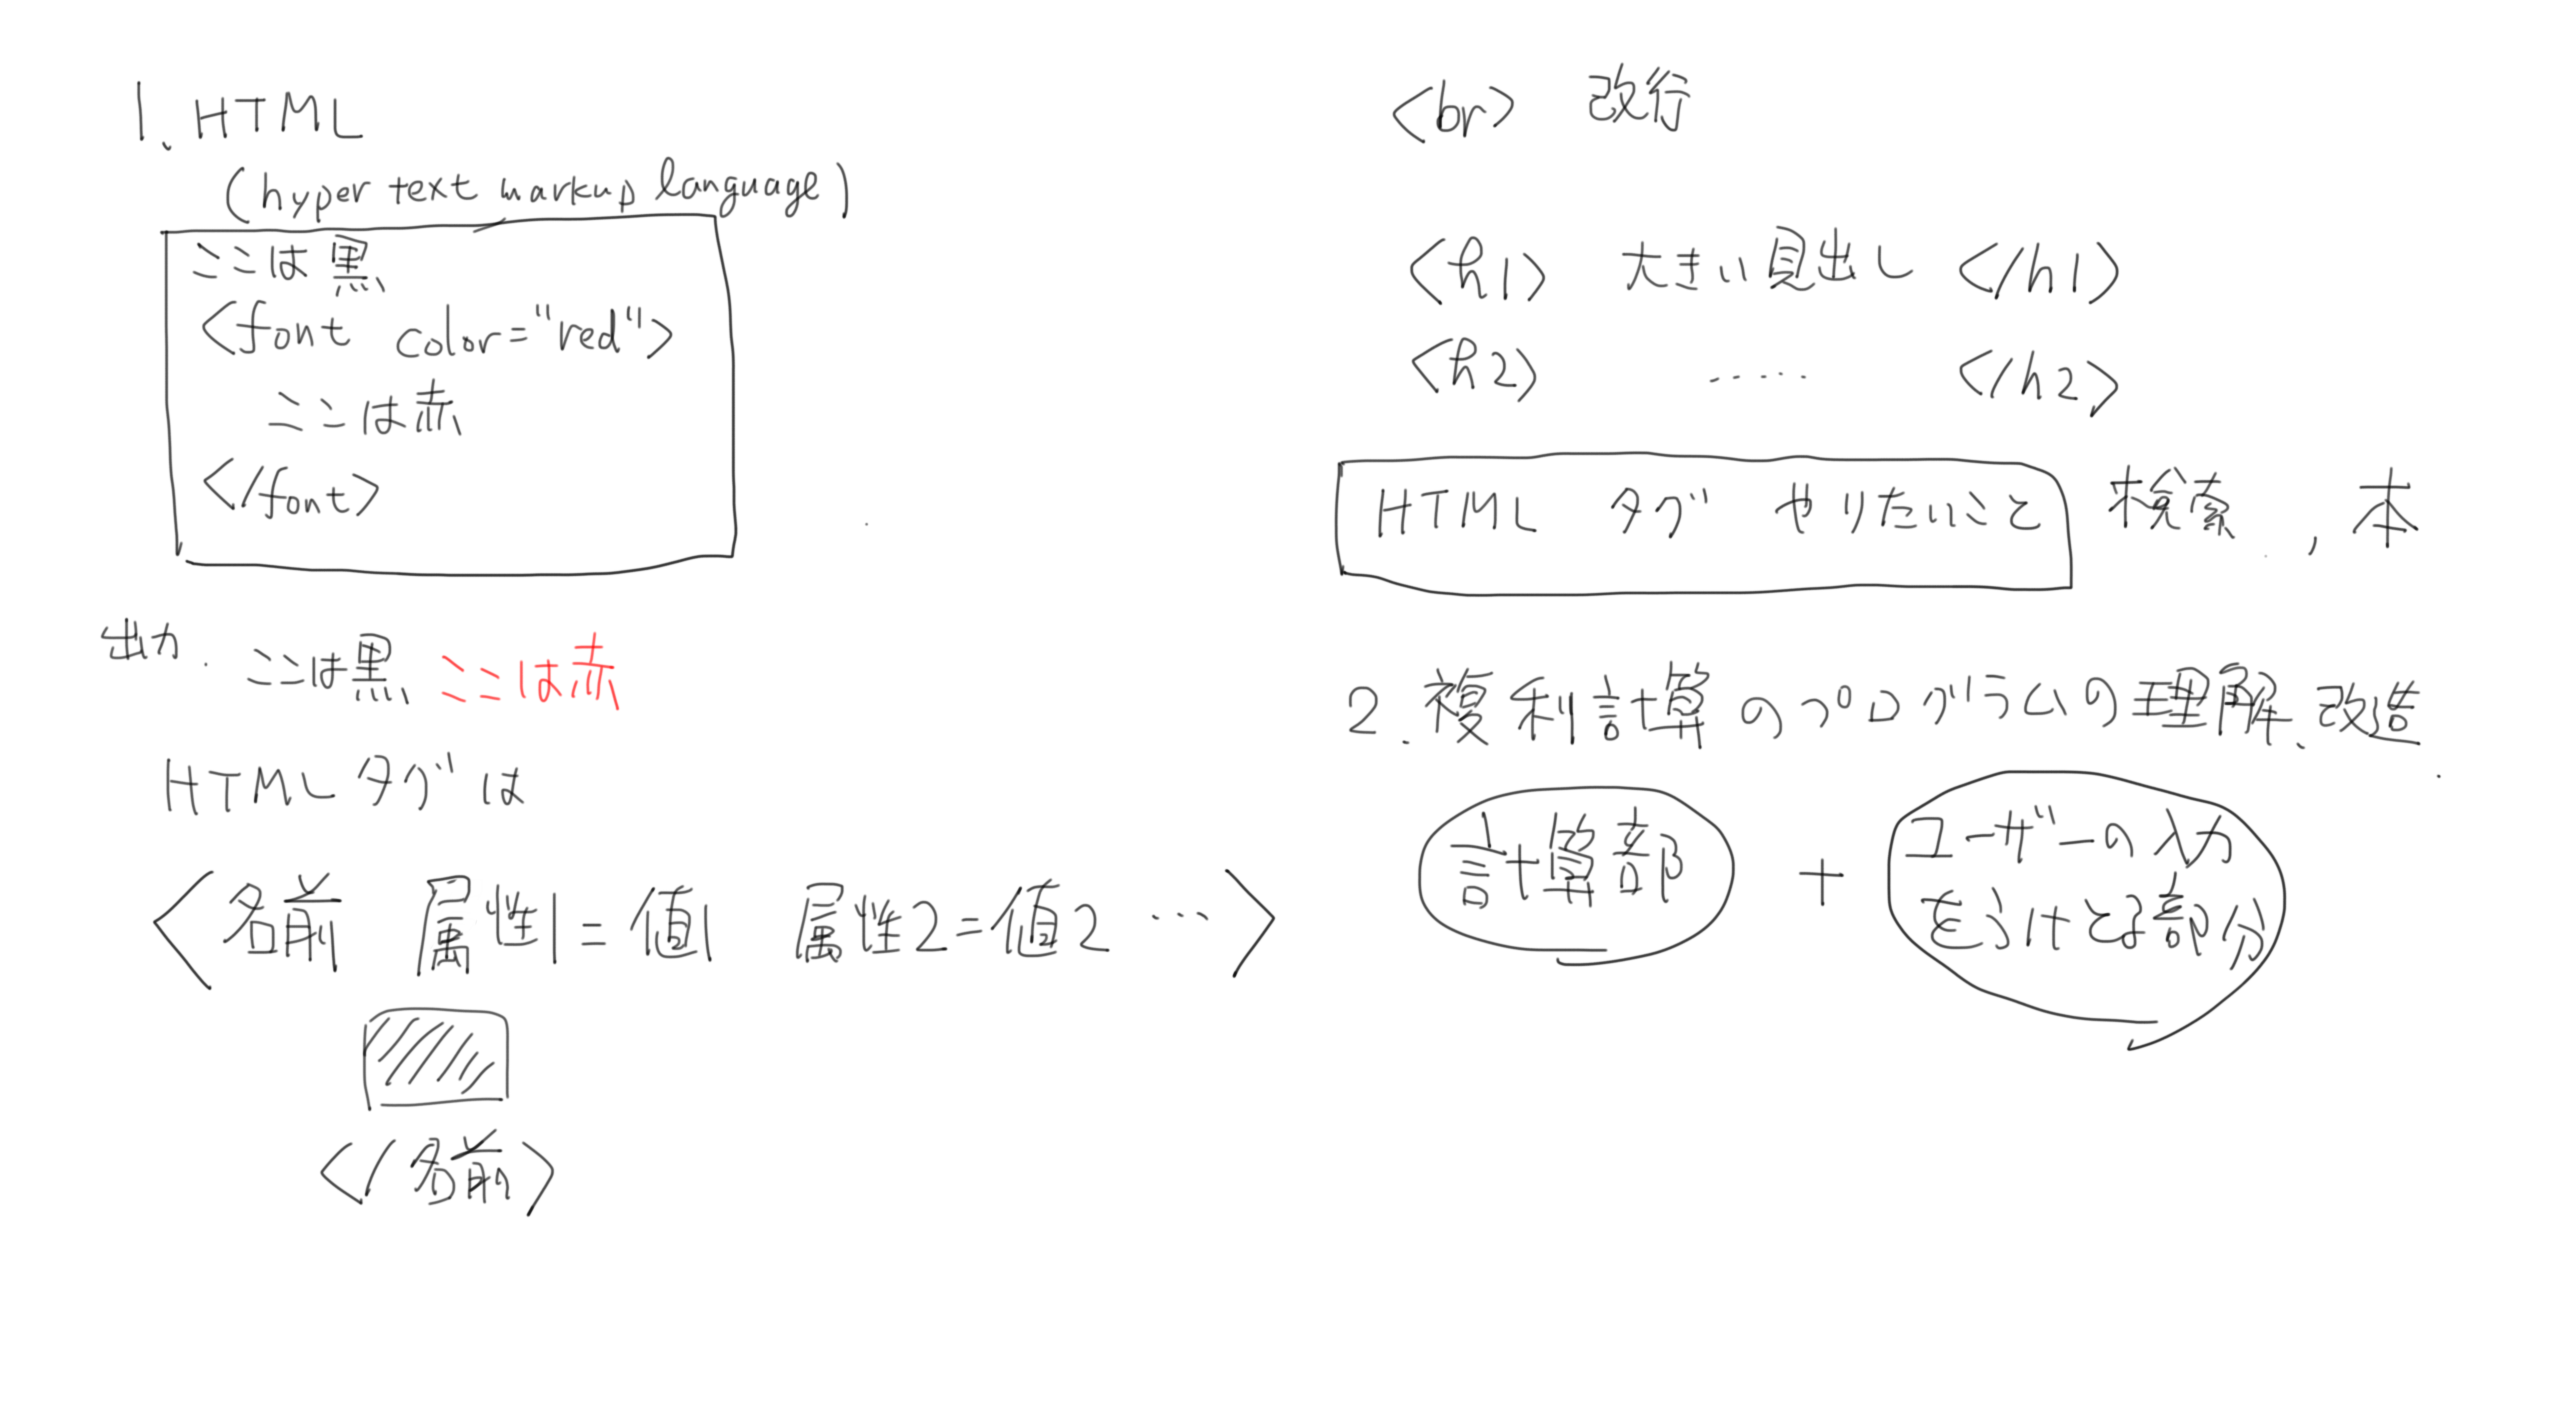 1. HTML
(hyper text markup language)
ここは黒
<font color="red">
ここは赤
</font>
出力. ここは黒 ここは赤
HTMLタグは
<名前 属性1=値1 属性2=値2 …>
</名前>
<br> 改行
<h1> 大きい見出し </h1>
<h2> ‥‥‥ </h2>
HTML タグ やりたいこと 検索, 本
2. 複利計算のプログラムの理解、改造.
計算部 + ユーザーの入力
をうけとる部分